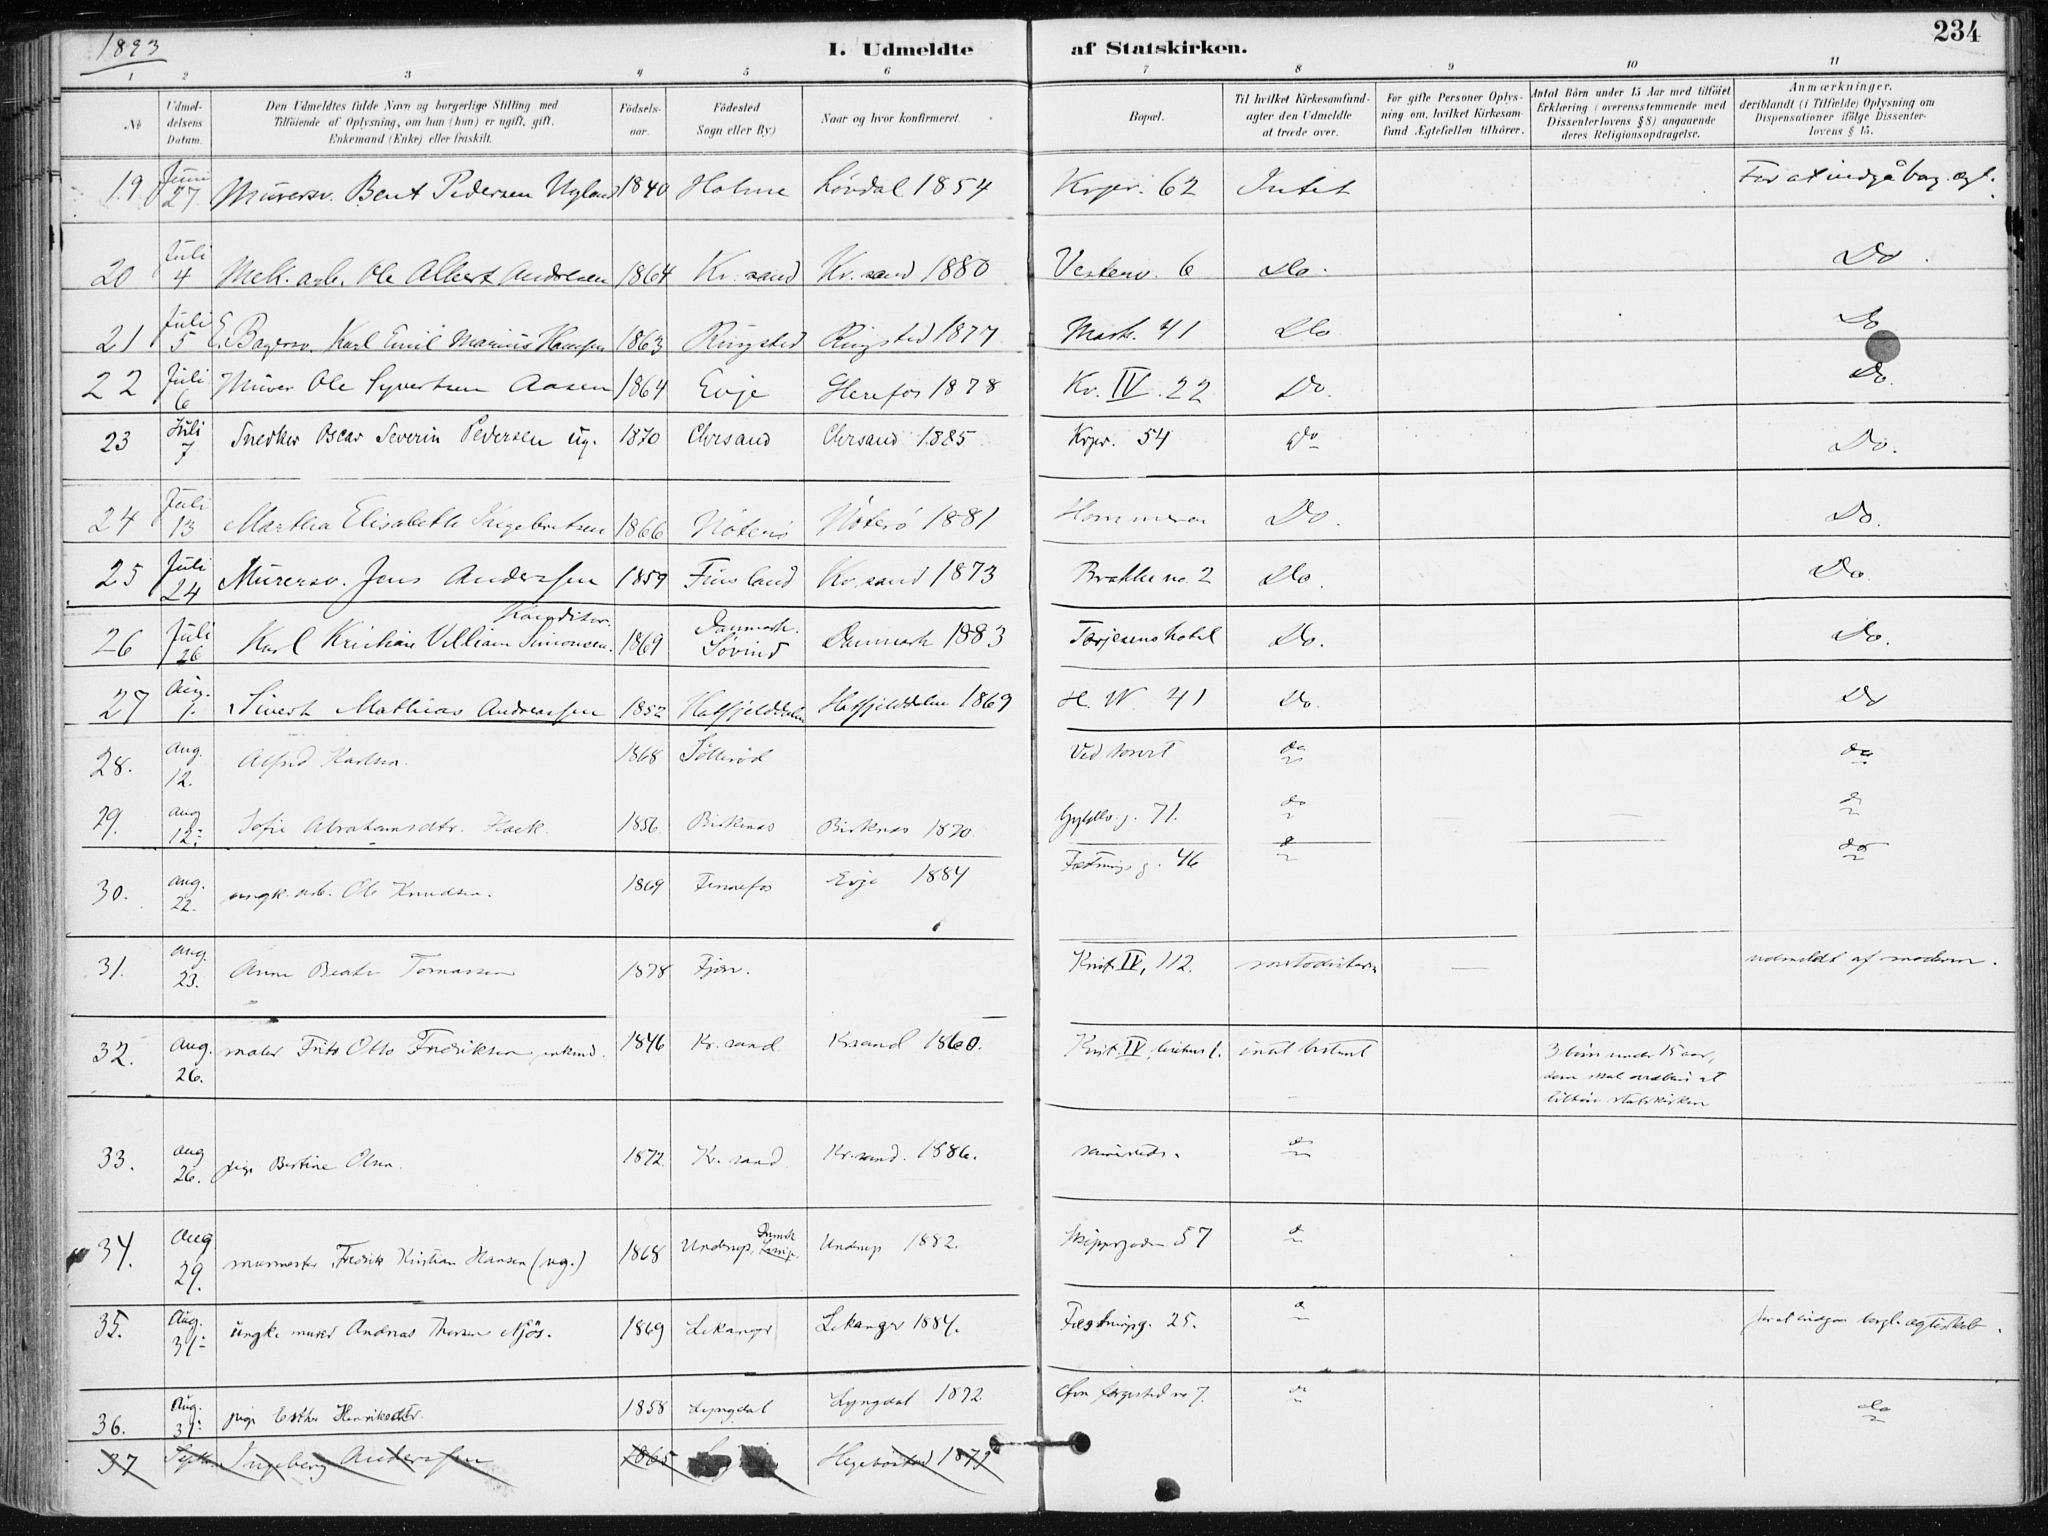 1893
I. Udmeldte af Statskirken.
234
1 2 3 4 5 6 7 8 9 10 11
No
Udmeldelsens Datum.
Den Udmeldtes fulde Navn og borgerlige Stilling med
Tilföiende af Oplysning, om han (hun) er ugift, gift,
Enkemand (Enke) eller fraskilt.
Födselsaar.
Födested
Sogn eller By)
Naar og hvor konfirmeret.
Bopæl.
Til hvilket Kirkesamfund agter den Udmeldte at træde over.
For gifte Personer Oplysning om, hvilket Kirkesamfund Ægtefællen tilhörer.
Antal Börn under 15 Aar med tilföiet
Erklæring (overensstemmende med
Dissenterlovens § 8) angaaende
deres Religionsopdragelse.
Anmærkninger,
deriblandt (i Tilfælde) Oplysning om
Dispensationer ifölge Dissenterlovens § 15.
19. Juni 27 Murersv. Bent Pedersen Ugland 1840 Holme Lövdal 1854 Krpr. 62 Intet For at indgå borg. ægt.
20 Juli 4 Mek. arb. Ole Albert Andresen 1864 Kr.sand Kr.sand 1880 Vesterv. 6 Do. Do.
21 Juli 5 Bagersv. Karl Emil Marius Hansen 1863 Ringsted Ringsted 1877 Mark. 41 Do Do
22 Juli 6 Murer Ole Syvertsen Aasen 1864 Evje Herefos 1878 Kv. IV. 22 Do. Do.
23 Juli 7 Snedker Oscar Severin Pedersen ug. 1870 Chrsand Chrsand 1885 Krpr. 54 Do Do.
24 Juli 13 Martha Elisabeth Ingebretsen 1866 Nöterö Nöterö 1881 Hommeren Do. Do.
25 Juli 24 Murersv. Jens Anderssen 1859 Finsland Kr.sand 1873 Brække no. 2 Do. Do
26 Juli 26 Karl Kristian Villiam Simonsen. Konditor. 1869 Danmark. Søvind Danmark 1883 Terjesens hotel Do. Do.
27 Aug. 1. Sivert Mathias Andreassen 1852 Hatfjelddalen Hatfjelddalen 1869 H. W. 41 Do. Do
28. Aug. 12. Alfred Karlsen. 1868 Sölleröd Ved torvet do do
29. Aug 12. Sofie Abrahamsdtr. 1856. Birkenes Birkenes 1870 Gyldlv. g. 71. do do
30. Aug. 22. ungk. arb. Ole Knudsen. 1869 Evje 1884 Fæstnings g. 46 do do
31. Aug. 23. Anne Beate Tomassen 1878 Fjære. Kvst. IV, 112. metodisterne udmeldt af moderen.
32. Aug. 26. maler Frits Otto Fredriksen, enkmd. 1846 Kr.sand Krsand 1860. Kvst. IV, intet bestemt 3 börn under 15 aar, som skal vedblive at tilhöre statskirken
33. Aug 26. pige Bertine Olsen. 1872. Kr.sand Kr.sand. 1886. sammesteds. do
34. Aug 29. murmester Fredrik Kristian Hansen (ug.) 1868 Underup, Underup 1882. Skippergaden 57 do
35. Aug. 31. ungk. murer Andreas Thorsen Njös. 1869 Lekanger Lekanger 1884. Fæstningsg. 25. do for at indgaa borgl. ægteskab.
36. Aug. 31. pige Esther Henriksdtr. 1858 Lyngdal Lyngdal 1872. no 7. do do
37 Ingeborg Anderssen 1865 Hegebostad 1879